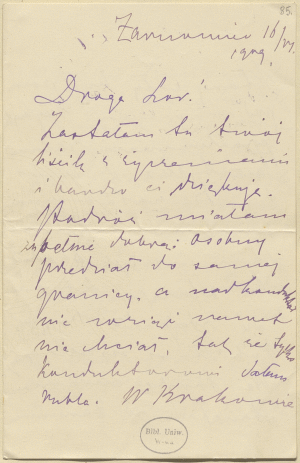 85.
Żarnowiec 16/VI.
1909.
Droga Lor!
Zastałam tu twój
liścik z życzeniami
i bardzo ci dziękuję.
Podróż miałam
zupełnie dobrą: osobny
przedział do samej
granicy, a nadkonduktor
nic wziąć nawet
nie chciał, tak że tylko
konduktorowi dałam
rubla. W Krakowie
Bibl. Uniw.